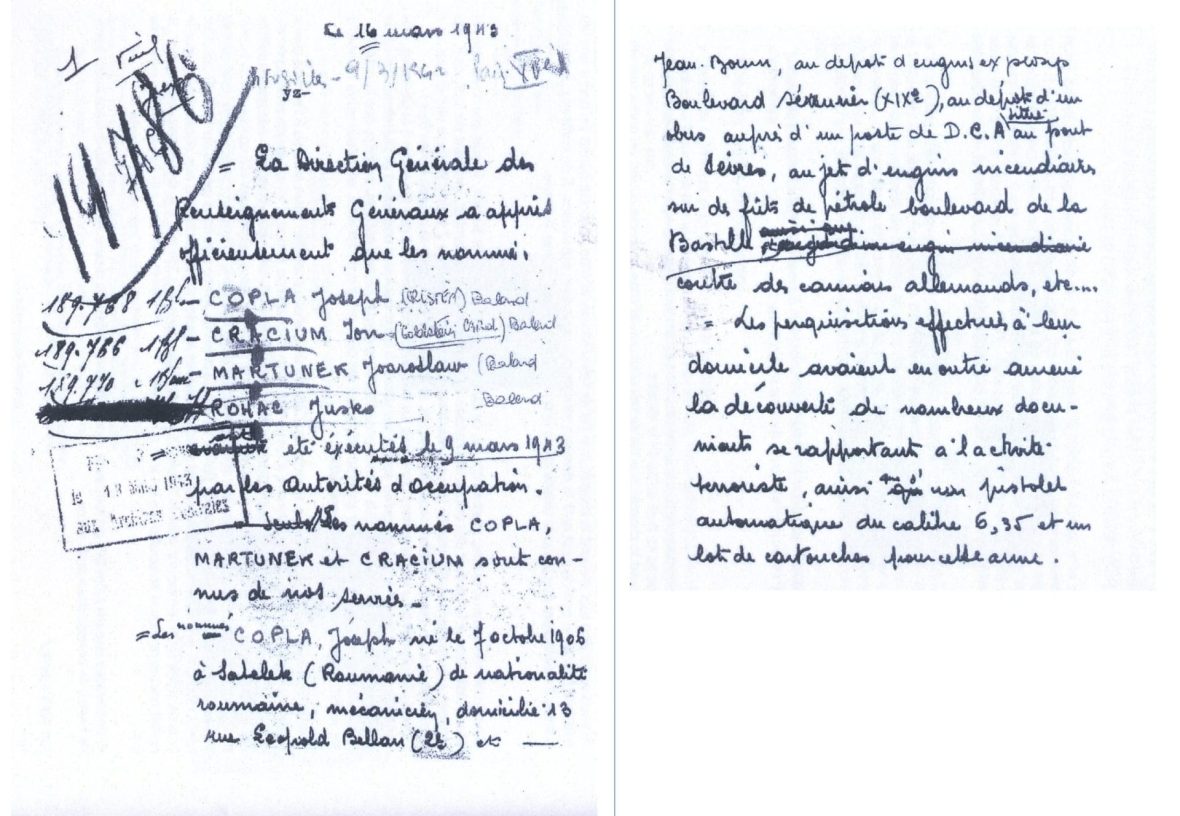 Le 16 mars 1943
1
14786
9/3/1942
= La Direction Générale des
Renseignements Généraux a appris
officieusement que les nommés.
189.768 - COPLA Joseph Balend
189.766 - CRACIUM Ion Balend
189.770 - MARTUNEK Joaroslaw (Balend
ROHAC Jusko Balend
= été exécutés le 9 mars 1943
par les autorités d'occupation.
le 18 1943
aux Archives Centrales
= Seuls les nommés COPLA,
MARTUNEK et CRACIUM sont con-
nus de nos services.
= Les nommés COPLA, Joseph né le 7 octobre 1906
à Satelek (Roumanie) de nationalité
roumaine, mécanicien, domicilié 13
rue Léopold Bellan (2è) et —
Jean-Bouin, au dépôt d'engins explosifs
Boulevard Sérurier (XIXè), au dépôt d'un
obus auprès d'un poste de D.C.A situé au pont
de Sèvres, au jet d'engins incendiaires
sur des fûts de pétrole boulevard de la
Bastille engin incendiaire
contre des camions allemands, etc....
= Les perquisitions effectuées à leur
domicile avaient en outre amené
la découverte de nombreux docu-
ments se rapportant à l'activité
terroriste, ainsi qu'un pistolet
automatique du calibre 6,35 et un
lot de cartouches pour cette arme.